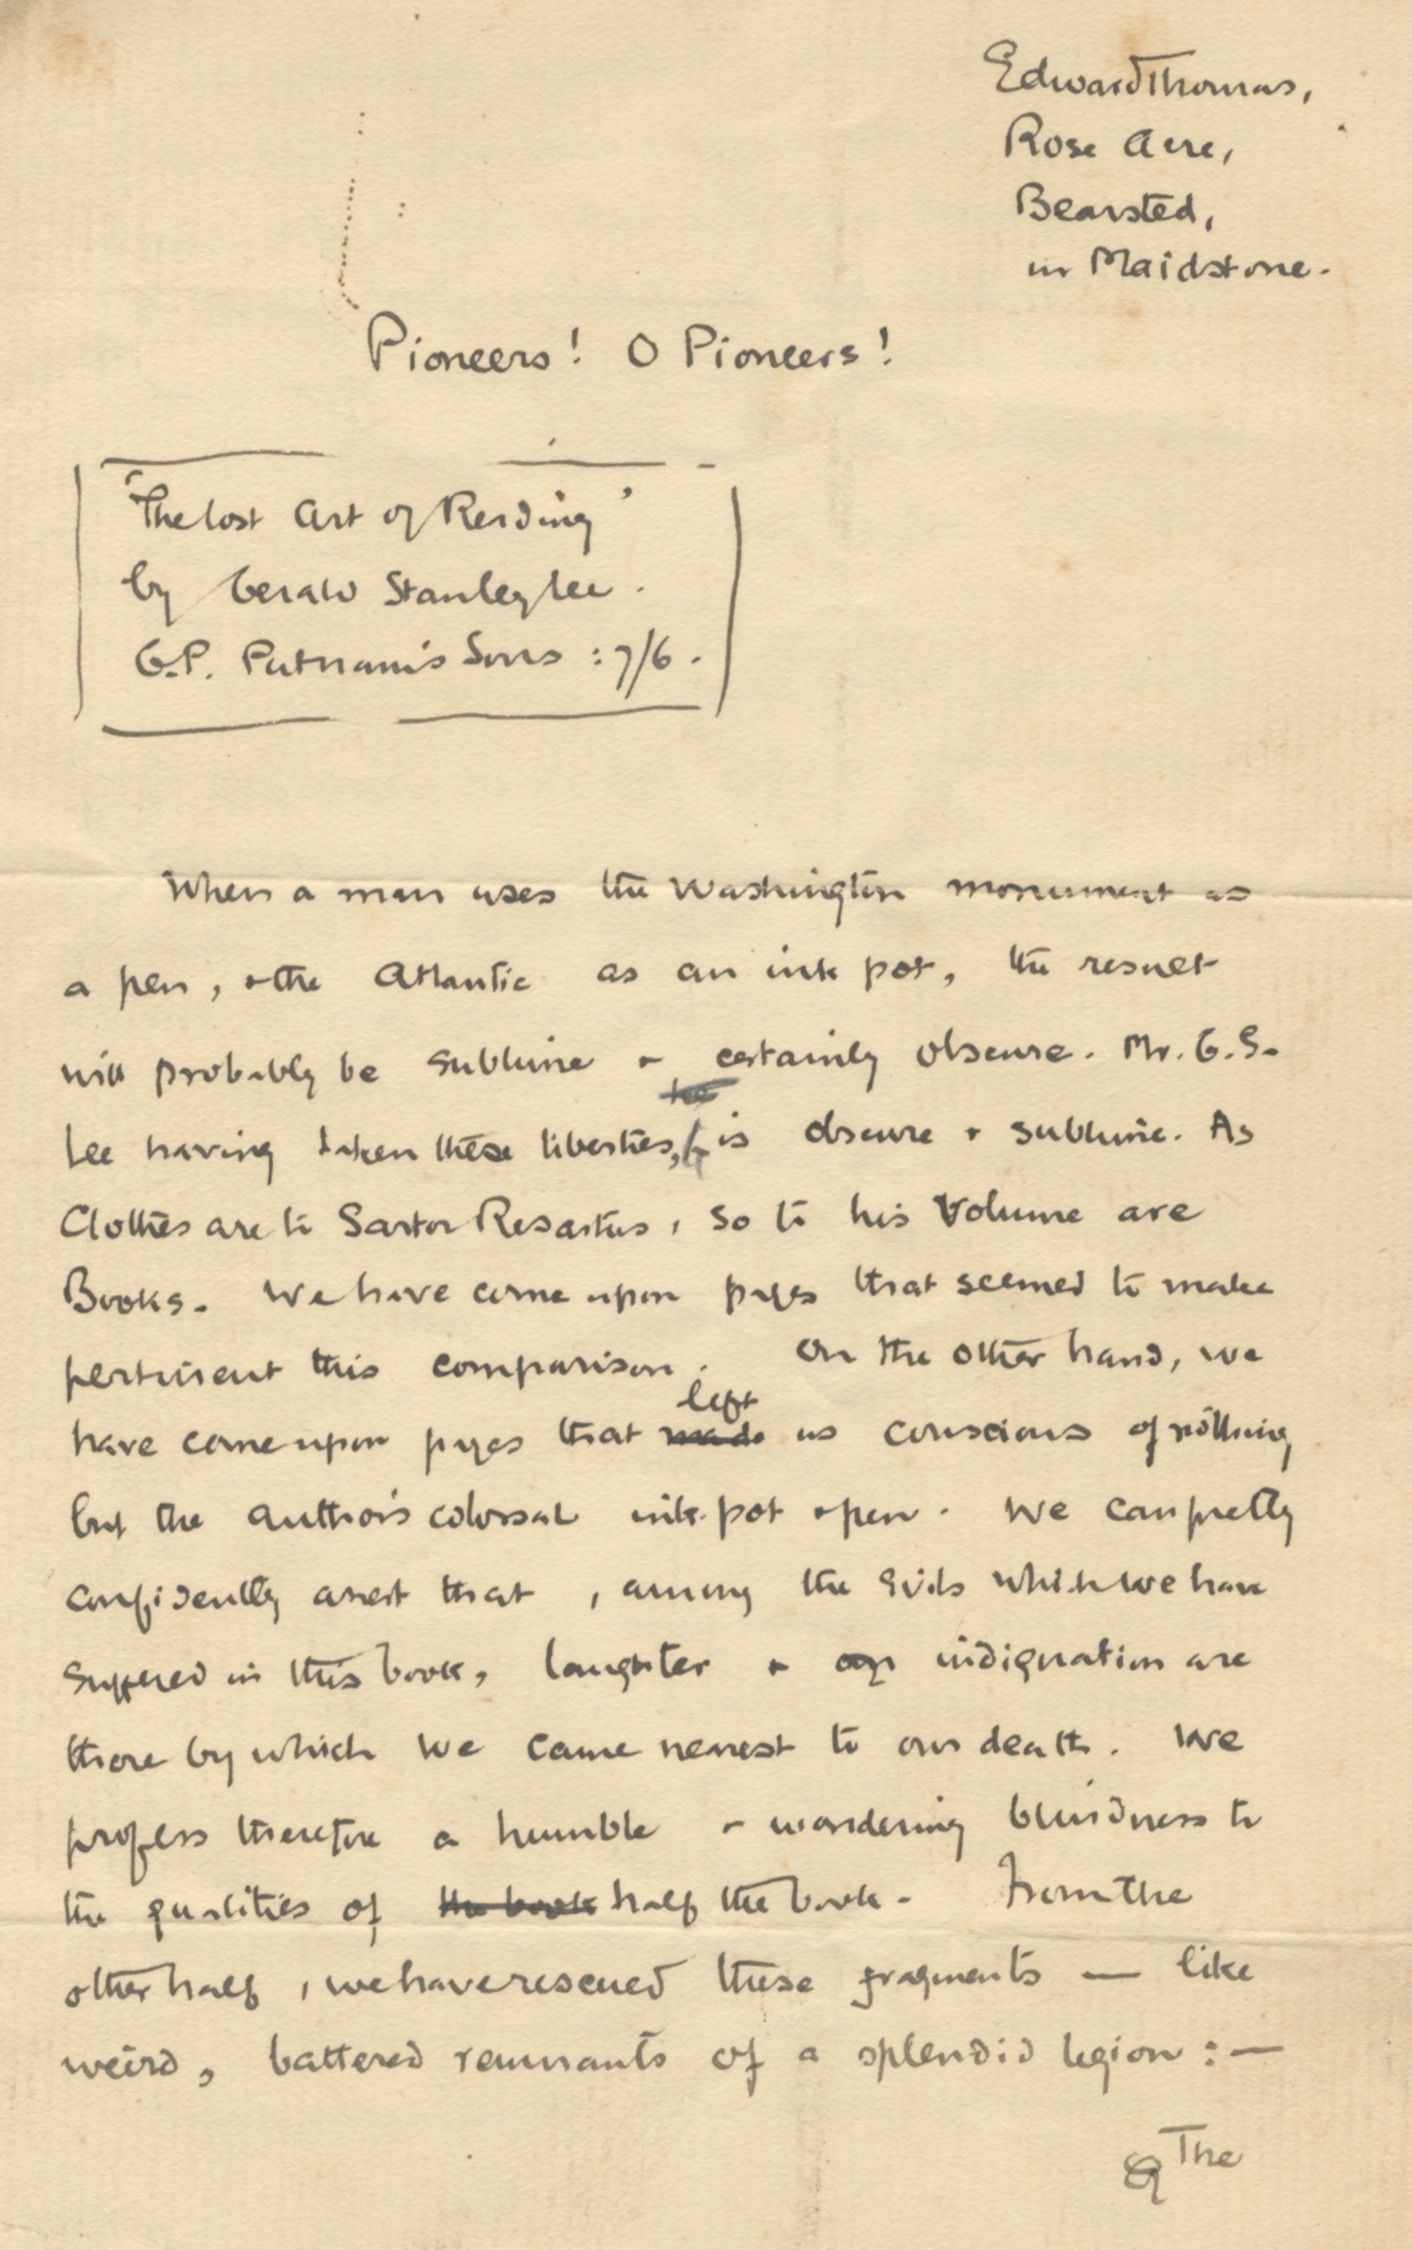 Edward Thomas,
Rose Acre,
Bearsted,
nr Maidstone.
Pioneers! O Pioneers!
'The Lost Art of Reading'
by Gerald Stanley Lee.
G.P. Putnam's Sons : 7/6.
When a man uses the Washington monument as
a pen, & the Atlantic as an ink pot, the result
will probably be sublime & certainly obscure. Mr. G.S.
he
Lee having taken these liberties, is obscure & sublime. As
Clothes are to Sartor Resartus, so to his Volume are
Books. We have come upon pages that seemed to make
pertinent this comparison. On the other hand, we
left
have come upon pages that made us conscious of nothing
but the author's colossal ink-pot & pen. We can pretty
confidently assert that, among the evils which we have
suffered in this book, laughter & indignation are
those by which we came nearest to our death. We
profess therefore a humble & wondering blindness to
the qualities of the book half the book. From the
other half, we have rescued these fragments — like
weird, battered remnants of a splendid legion : —
The